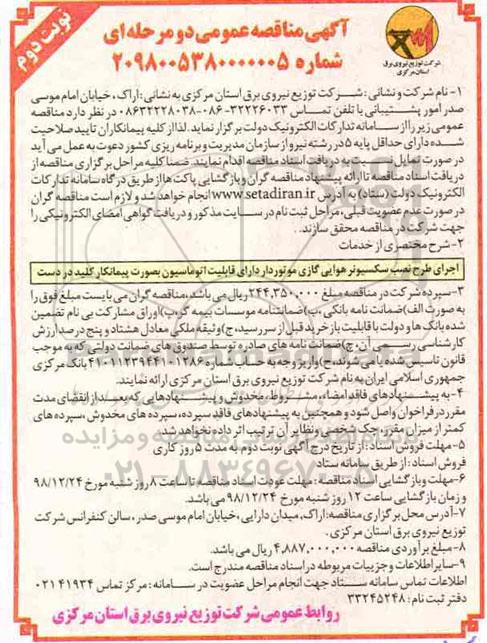 نوبت دوم
شرکت توزیع نیروی برق
استان مرکزی
آگهی مناقصه عمومی دو مرحله ای
شماره ۲۰۹۸۰۰۵۳۸۰۰۰۰۰۰۵
۱- نام شرکت و نشانی: شرکت توزیع نیروی برق استان مرکزی به نشانی: اراک، خیابان امام موسی
صدر امور پشتیبانی با تلفن تماس ۳۲۲۲۶۰۳۳-۰۸۶-۰۸۶۳۲۲۲۸۰۳۸ در نظر دارد مناقصه
عمومی زیر را از سامانه تدارکات الکترونیک دولت برگزار نماید. لذا از کلیه پیمانکاران تایید صلاحیت
شده دارای حداقل پایه ۵ در رشته نیرو از سازمان مدیریت و برنامه ریزی کشور دعوت به عمل می آید
در صورت تمایل نسبت به دریافت اسناد مناقصه اقدام نمایند. ضمنا کلیه مراحل برگزاری مناقصه از
دریافت اسناد مناقصه تا ارائه پیشنهاد مناقصه گران و بازگشایی پاکت ها از طریق درگاه سامانه تدارکات
الکترونیک دولت (ستاد) به آدرس www.setadiran.ir انجام خواهد شد و لازم است مناقصه گران
در صورت عدم عضویت قبلی، مراحل ثبت نام در سایت مذکور و دریافت گواهی امضای الکترونیکی را
جهت شرکت در مناقصه محقق سازند.
۲- شرح مختصری از خدمات
اجرای طرح نصب سکسیونر هوایی گازی موتوردار دارای قابلیت اتوماسیون بصورت پیمانکار کلید در دست
۳- سپرده شرکت در مناقصه مبلغ ۲۴۴,۳۵۰,۰۰۰ ریال می باشد، مناقصه گران می بایست مبلغ فوق را
به صورت الف) ضمانت نامه بانکی، ب) ضمانتنامه موسسات بیمه گر، پ) اوراق مشارکت بی نام تضمین
شده بانک ها و دولت با قابلیت باز خرید قبل از سررسید، ج) وثیقه ملکی معادل هشتاد و پنج درصد ارزش
کارشناسی رسمی آن، چ) ضمانت نامه های صادره توسط صندوق های ضمانت دولتی که به موجب
قانون تاسیس شده یا می شوند، ح) واریز وجه به حساب شماره ۴۱۰۱۱۲۳۹۴۴۱۰۱۲۸۶ بانک مرکزی
جمهوری اسلامی ایران به نام شرکت توزیع نیروی برق استان مرکزی ارائه نمایند.
۴- به پیشنهادهای فاقد امضاء، مشروط، مخدوش و پیشنهادهایی که بعد از انقضای مدت
مقرر در فراخوان واصل شود و همچنین به پیشنهادهای فاقد سپرده، سپرده های مخدوش، سپرده های
کمتر از میزان مقرر، چک شخصی و نظایر آن ترتیب اثر داده نخواهد شد.
۵- مهلت فروش اسناد: از تاریخ درج آگهی نوبت دوم به مدت ۵ روز کاری
فروش اسناد: از طریق سامانه ستاد
۶- مهلت و بازگشایی اسناد مناقصه: مهلت عودت اسناد مناقصه تا ساعت ۸ روز شنبه مورخ ۹۸/۱۲/۲۴
و زمان بازگشایی ساعت ۱۲ روز شنبه مورخ ۹۸/۱۲/۲۴ می باشد.
۷- آدرس محل برگزاری مناقصه: اراک، میدان دارایی، خیابان امام موسی صدر، سالن کنفرانس شرکت
توزیع نیروی برق استان مرکزی.
۸- مبلغ برآوردی مناقصه ۴,۸۸۷,۰۰۰,۰۰۰ ریال می باشد.
۹- سایر اطلاعات و جزییات مربوطه در اسناد مناقصه مندرج است.
اطلاعات تماس سامانه ستاد جهت انجام مراحل عضویت در سامانه: مرکز تماس ۴۱۹۳۴-۰۲۱
دفتر ثبت نام: ۳۳۲۴۵۲۴۸
روابط عمومی شرکت توزیع نیروی برق استان مرکزی
۰۲۱-۸۸۳۴۹۶۷۰-۵